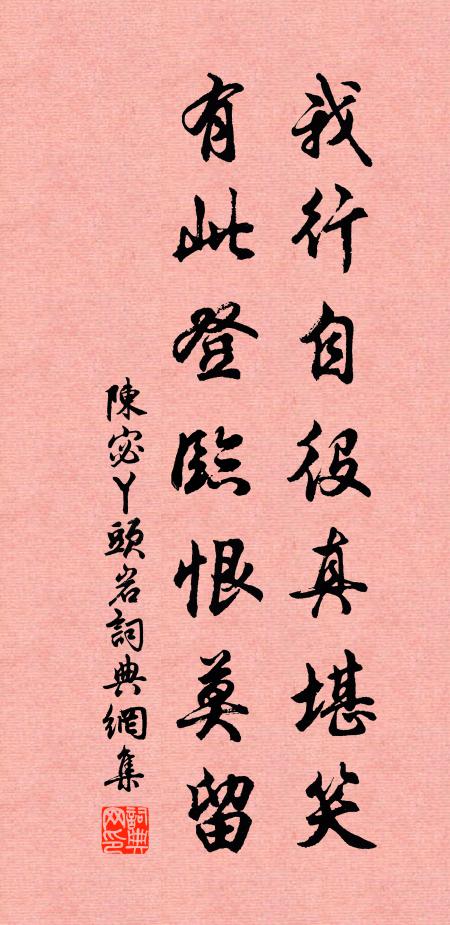 我行自役真堪笑
有此登臨恨莫留
陳宓丫頭岩詞典網集
詞典网印